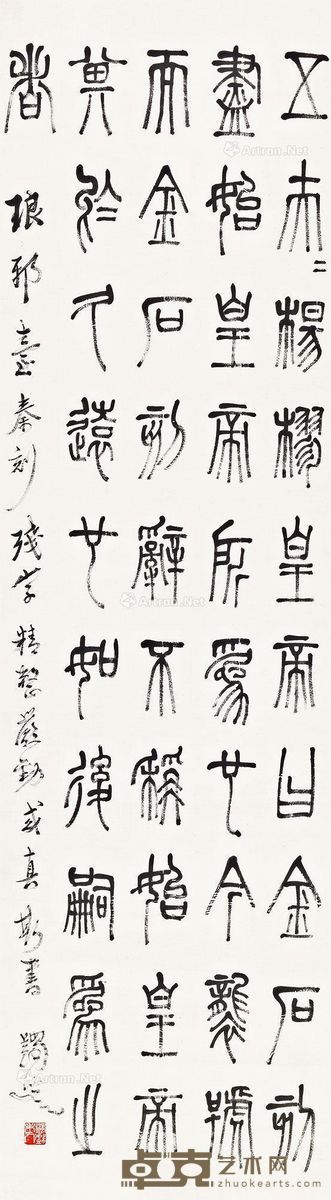 五夫=楊樛皇帝曰金石刻
盡始皇帝所為也今襲號
而金石刻辭不稱始皇帝
其於久遠也如後嗣為之
者
琅邪臺秦刻殘字精整嚴勁或真斯書 蠲叟
Artron.Net
卓克艺术网
zhuokearts.com